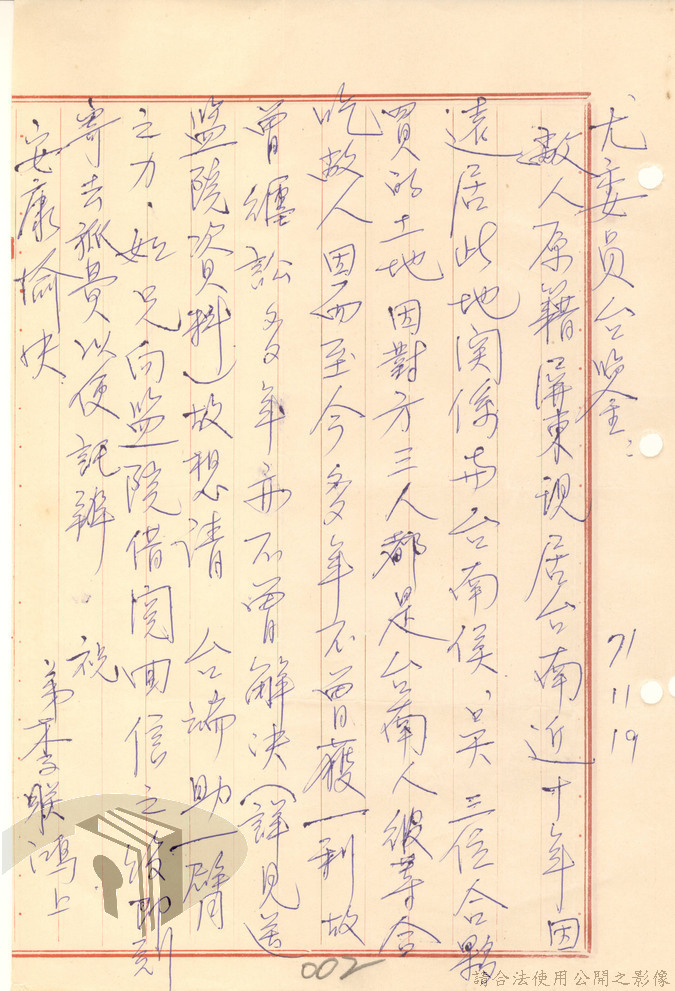 尤委員台鑒：
敝人原籍屏東現居台南近十年因
遠居此地関係与台南侯、吳 三位合夥
買的土地因對方三人都是台南人彼等合
吃敝人因而至今多年不曾獲一利故
曾纏訟多年亦不曾解決（詳見送
監院資料）故想請 台端助一臂
之力 如兄向監院借閱回信之後即刻
寄去 費以便託辦。祝
安康愉快
弟李聯鴻上
71
11
19
002
請合法使用公開之影像